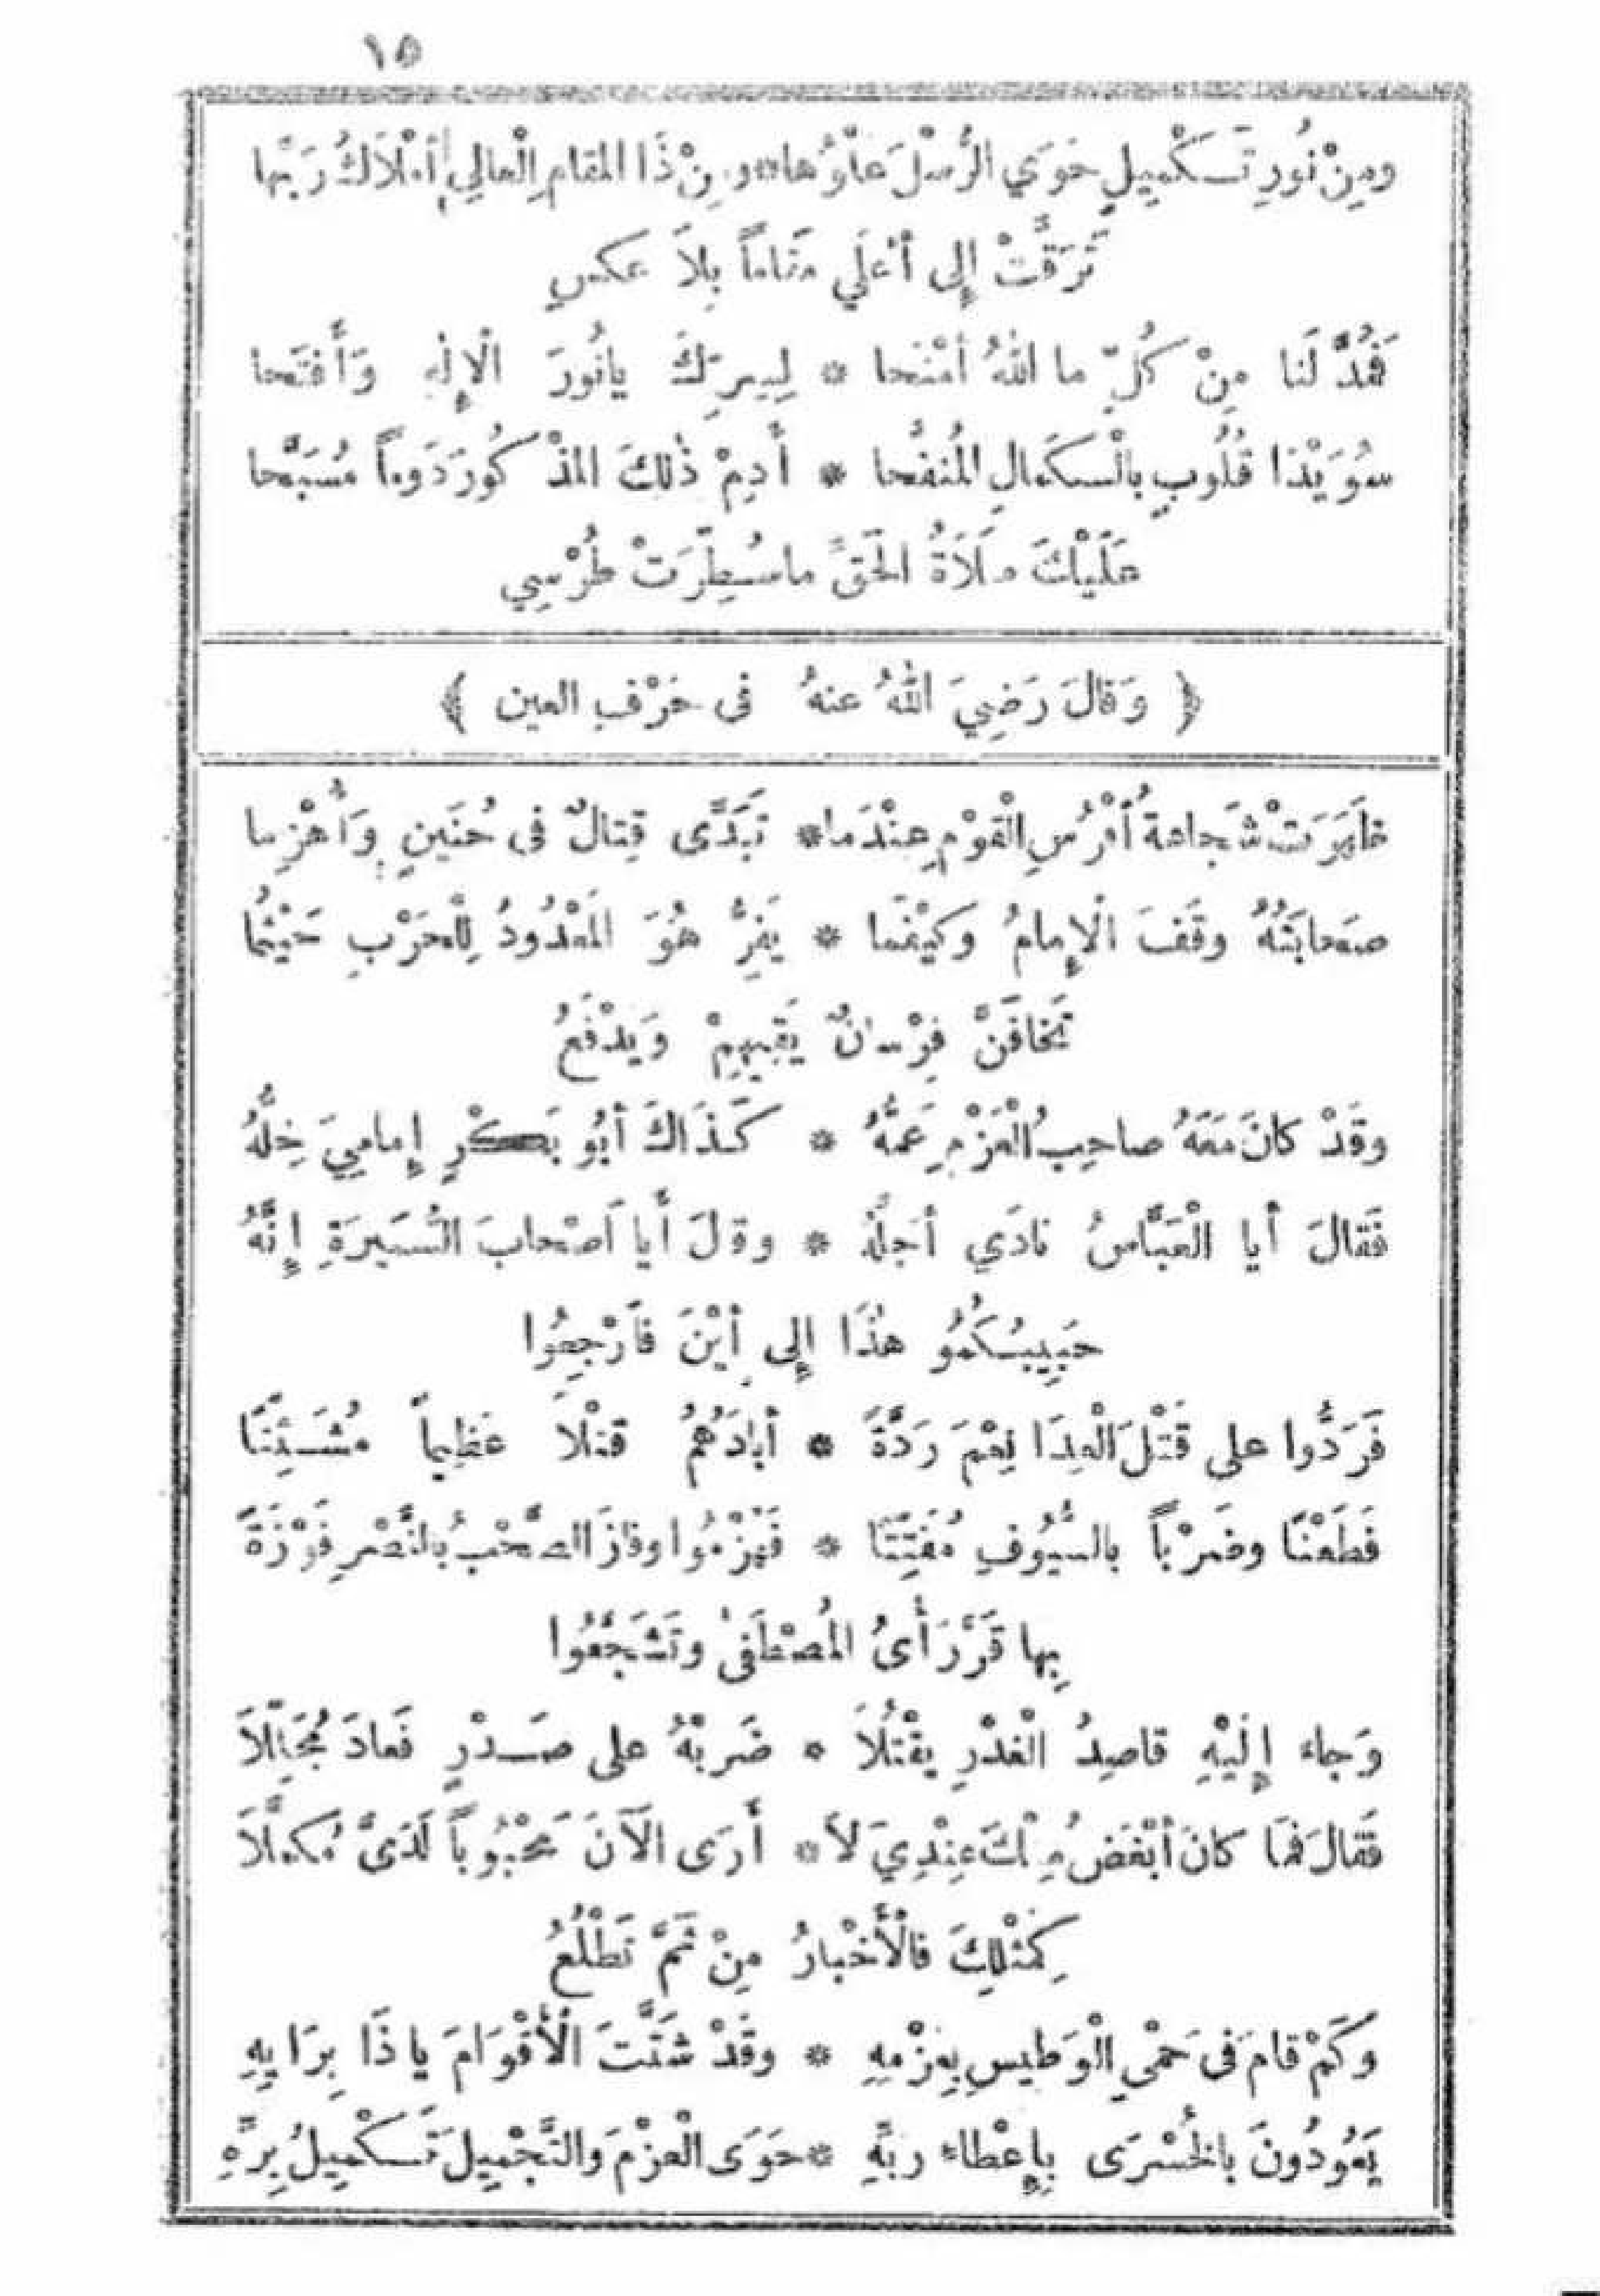 ١٥
ومِنْ نُورِ تَسكْمِيلٍ حَوَي الرُّسْلَ عَلْوُها * ومِنْ ذَا المَقامِ الْعالِي أمْلاَكُ رَبِّها
تَرَقَّتْ إِلى أعْلَي مَقاماً بِلاَ عكسِ
فَمُدَّ لَنا مِنْ كُلِّ ما اللهُ أمْنَحا * لِسِرِّكَ يانُورَ الْإِلٰهِ وَأَفتَحا
سُوَيْدَا قُلُوبٍ بالْسكَمالِ المُنفَّحا * أَدِمْ ذٰلكَ المَذْكُورَ دَوماً مُسَبَّحا
عَلَيْكَ صَلاَةُ الحَقِّ ماسُطِّرَتْ طُرْسِي
﴿ وَقالَ رَضِيَ اللهُ عنهُ فى حَرْفِ العين ﴾
ظَهَرَتْ شَجاعةُ أفْرُسِ الْقَوْمِ عِنْدَما * تَبَدَّى قِتالٌ فى حُنَينٍ وَأُهْزِما
صَحابَتُهُ وقَفَ الْإِمامُ وكَيْفَما * يَفِرُّ هُوَ المَعْدُودُ لِلْحَرْبِ حَيْثُما
تَخافَنَّ فِرْسانٌ يَقِيهِمْ وَيَدْفَعُ
وقَدْ كانَ مَعَهُ صاحِبُ الْعَزْمِ عَمُّهُ * كَذَاكَ أبُو بَكْرٍ إِمامِيَ خِلُّهُ
فَقالَ أيا الْعَبَّاسُ نادَي أجَلَّهُ * وقالَ أيا أصْحابَ السَّمِيرَةِ إِنَّهُ
حَبِيبُسكُمُو هٰذَا إِلى أيْنَ فَأَرْجِعُوا
فَرَدُّوا على قَتْلِ الْعِدَا نِعْمَ رَدَّةً * أبادَهُمُ قتْلا عَظِيماً مُشَتِّتًا
فَطَعْنًا وضَرْباً بالسُّيُوفِ مُفَتِّتًا * فَهُزْمُوا وفازَ الصَّحْبُ بالنَّصْرِ فَوْزَةً
بِها قَرَّ رَأىُ المُصْطَفىٰ وتَشَجَّعُوا
وَجاء إِلَيْهِ قاصِدُ الْغَدْرِ يَقْتُلَا * ضَرَبْهُ على صَدْرٍ فَعادَ مُجَلِّلاَ
فَقالَ فَما كانَ أبْغَضُ مِنْكَ عِنْدِيَ لَا * أَرَى الْآنَ مَحْبُوباً لَدَىَّ مُكمَّلاَ
كَمَثْلِكَ فالْأَخْبارُ مِنْ ثَمَّ تَطْلُعُ
وَكَمْ قامَ فى حَمْيِ الْوَطِيسِ بِعَزْمِهِ * وقَدْ شَتَّتَ الْأَقْوَامَ ياذَا بِرَايِهِ
يَعُودُونَ بالخُسْرَى بِإِعْطاء ربِّهِ * حَوَى الْعزْمَ والتَّجْمِيلَ تَسكْمِيلُ بِرِّهِ